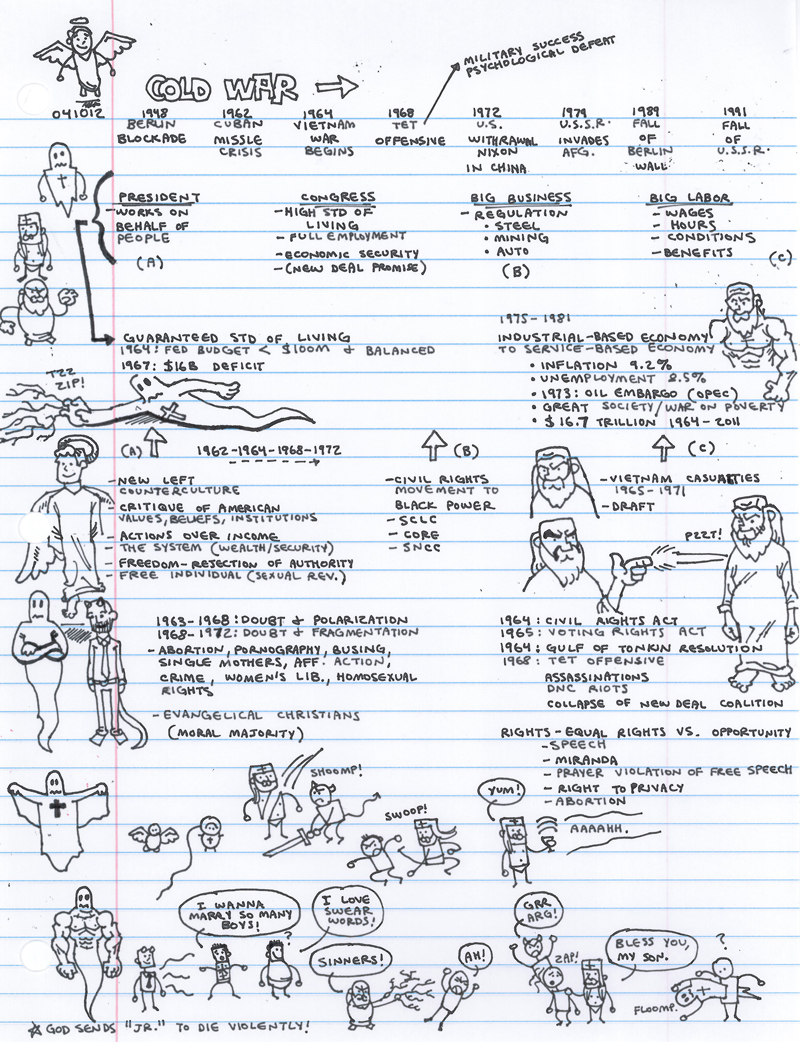 MILITARY SUCCESS
PSYCHOLOGICAL DEFEAT
COLD WAR
041012
1948
BERLIN
BLOCKADE
1962
CUBAN
MISSLE
CRISIS
1964
VIETNAM
WAR
BEGINS
1968
TET
OFFENSIVE
1972
U.S.
WITHDRAWAL
NIXON
IN CHINA
1979
U.S.S.R.
INVADES
AFG.
1989
FALL
OF
BERLIN
WALL
1991
FALL
OF
U.S.S.R.
PRESIDENT
- WORKS ON
BEHALF OF
PEOPLE
(A)
CONGRESS
- HIGH STD OF
LIVING
- FULL EMPLOYMENT
- ECONOMIC SECURITY
- (NEW DEAL PROMISE)
BIG BUSINESS
- REGULATION
• STEEL
• MINING
• AUTO
(B)
BIG LABOR
- WAGES
- HOURS
- CONDITIONS
- BENEFITS
(C)
GUARANTEED STD OF LIVING
1964: FED BUDGET < $100M & BALANCED
1967: $16B DEFICIT
1975-1981
INDUSTRIAL-BASED ECONOMY
TO SERVICE-BASED ECONOMY
• INFLATION 9.2%
• UNEMPLOYMENT 8.5%
• 1973: OIL EMBARGO (OPEC)
• GREAT SOCIETY/WAR ON POVERTY
• $16.7 TRILLION 1964-2011
TZZ
ZIP!
(A)
1962-1964-1968-1972
(B)
(C)
- NEW LEFT
COUNTERCULTURE
- CRITIQUE OF AMERICAN
VALUES, BELIEFS, INSTITUTIONS
- ACTIONS OVER INCOME
- THE SYSTEM (WEALTH/SECURITY)
- FREEDOM-REJECTION OF AUTHORITY
- FREE INDIVIDUAL (SEXUAL REV.)
- CIVIL RIGHTS
MOVEMENT TO
BLACK POWER
- SCLC
- CORE
- SNCC
- VIETNAM CASUALTIES
1965-1971
- DRAFT
PZZT!
1963-1968: DOUBT & POLARIZATION
1968-1972: DOUBT & FRAGMENTATION
- ABORTION, PORNOGRAPHY, BUSING,
SINGLE MOTHERS, AFF. ACTION,
CRIME, WOMEN'S LIB., HOMOSEXUAL
RIGHTS
- EVANGELICAL CHRISTIANS
(MORAL MAJORITY)
1964: CIVIL RIGHTS ACT
1965: VOTING RIGHTS ACT
1964: GULF OF TONKIN RESOLUTION
1968: TET OFFENSIVE
ASSASSINATIONS
DNC RIOTS
COLLAPSE OF NEW DEAL COALITION
RIGHTS - EQUAL RIGHTS VS. OPPORTUNITY
- SPEECH
- MIRANDA
- PRAYER VIOLATION OF FREE SPEECH
- RIGHT TO PRIVACY
- ABORTION
SHOOMP!
SWOOP!
YUM!
AAAAHH.
I WANNA
MARRY SO MANY
BOYS!
I LOVE
SWEAR
WORDS!
?
SINNERS!
AH!
GRR
ARG!
ZAP!
BLESS YOU,
MY SON.
?
FLOOMP.
☆ GOD SENDS "JR." TO DIE VIOLENTLY!